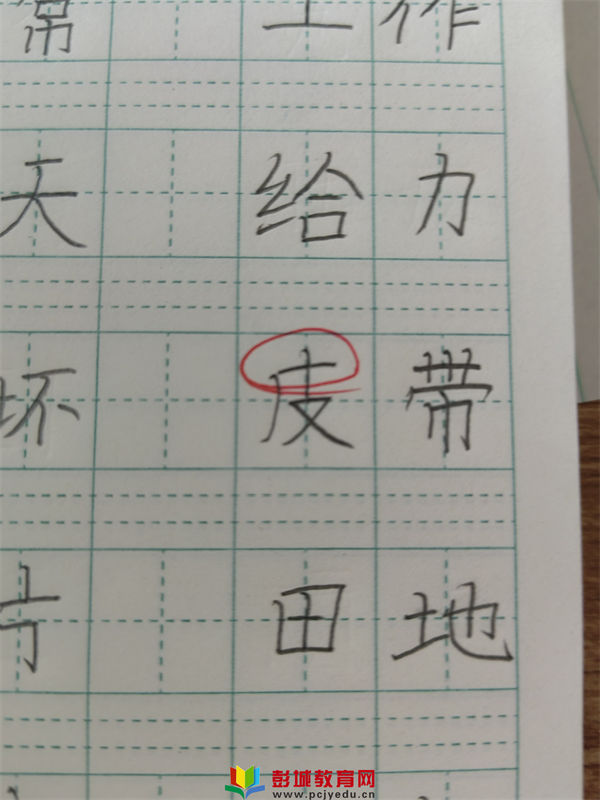 工作
天 给力
坏 皮带
片 田地
彭城教育网
www.pcjyedu.cn